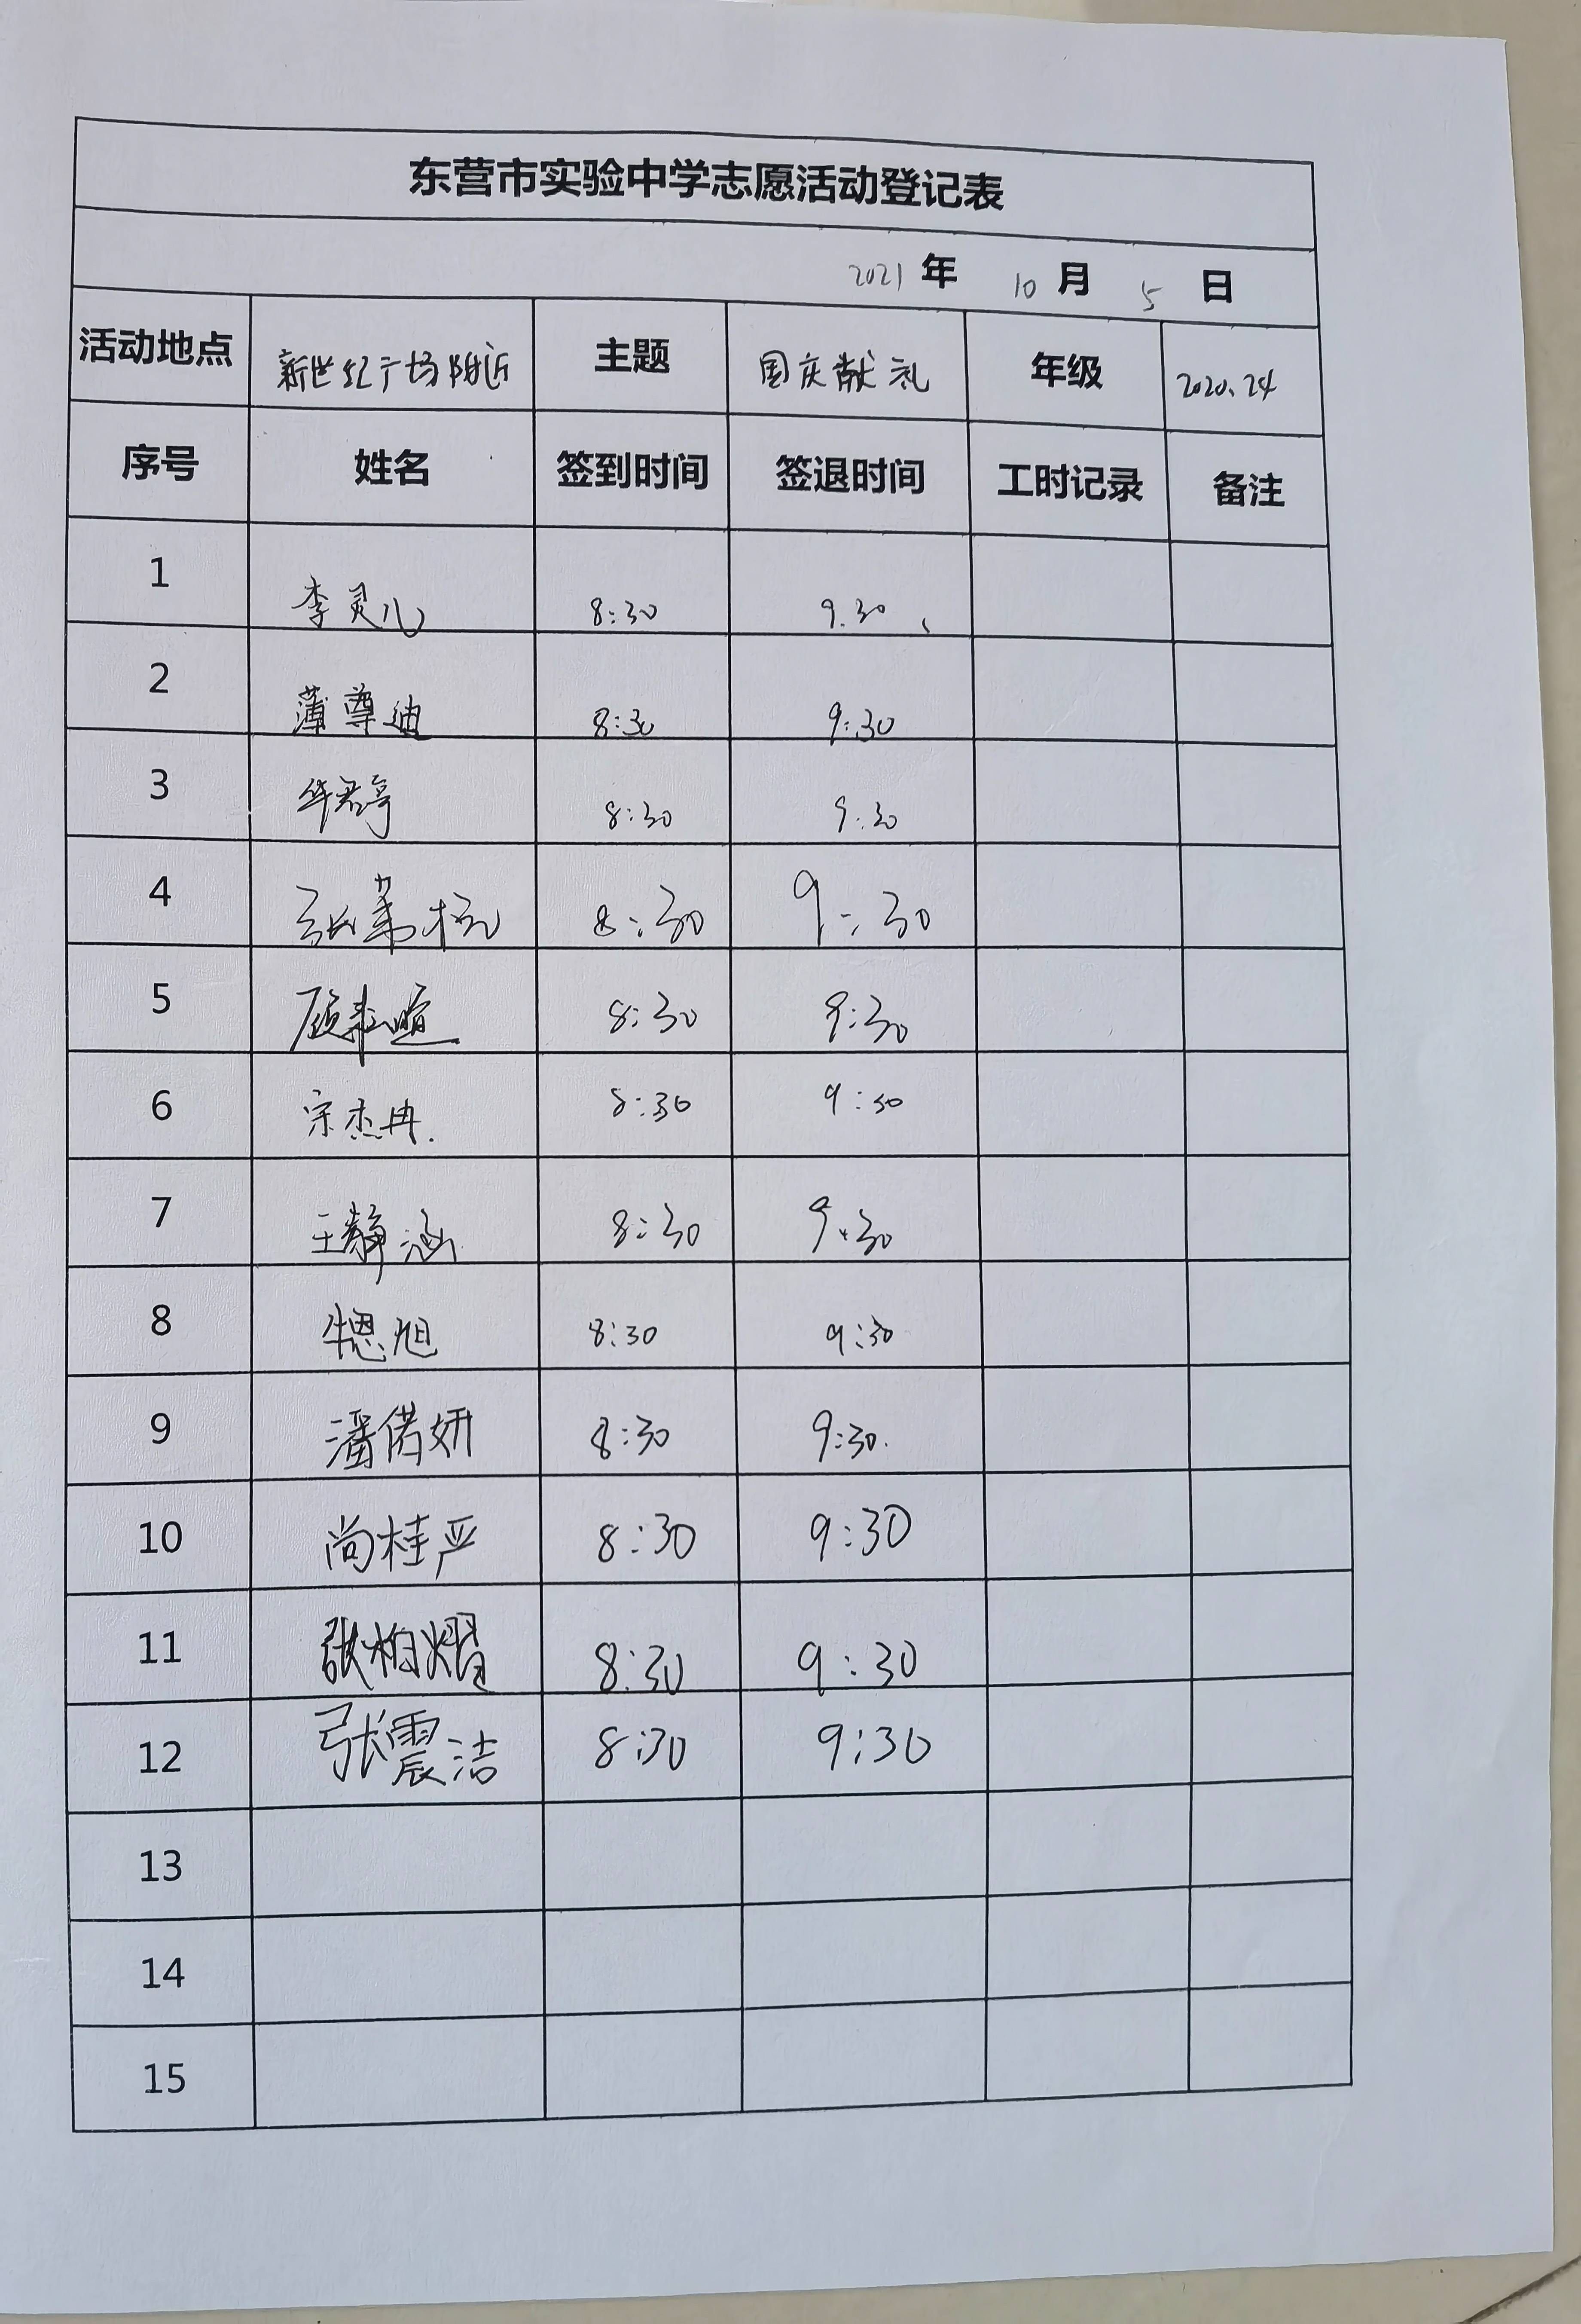 东营市实验中学志愿活动登记表
2021年 10月 5日
活动地点 新世纪广场附近 主题 国庆献礼 年级 2020.24
序号 姓名 签到时间 签退时间 工时记录 备注
1 李灵儿 8:30 9.30
2 薄尊迪 8:30 9:30
3 华君婷 8:30 9:30
4 张 8:30 9:30
5 顾 8:30 9:30
6 宗杰冉. 8:30 9:30
7 王静涵 8:30 9:30
8 牛恩旭 8:30 9:30
9 潘偌妍 8:30 9:30.
10 尚桂严 8:30 9:30
11 张柏熠 8:30 9:30
12 张震洁 8:30 9:30
13
14
15